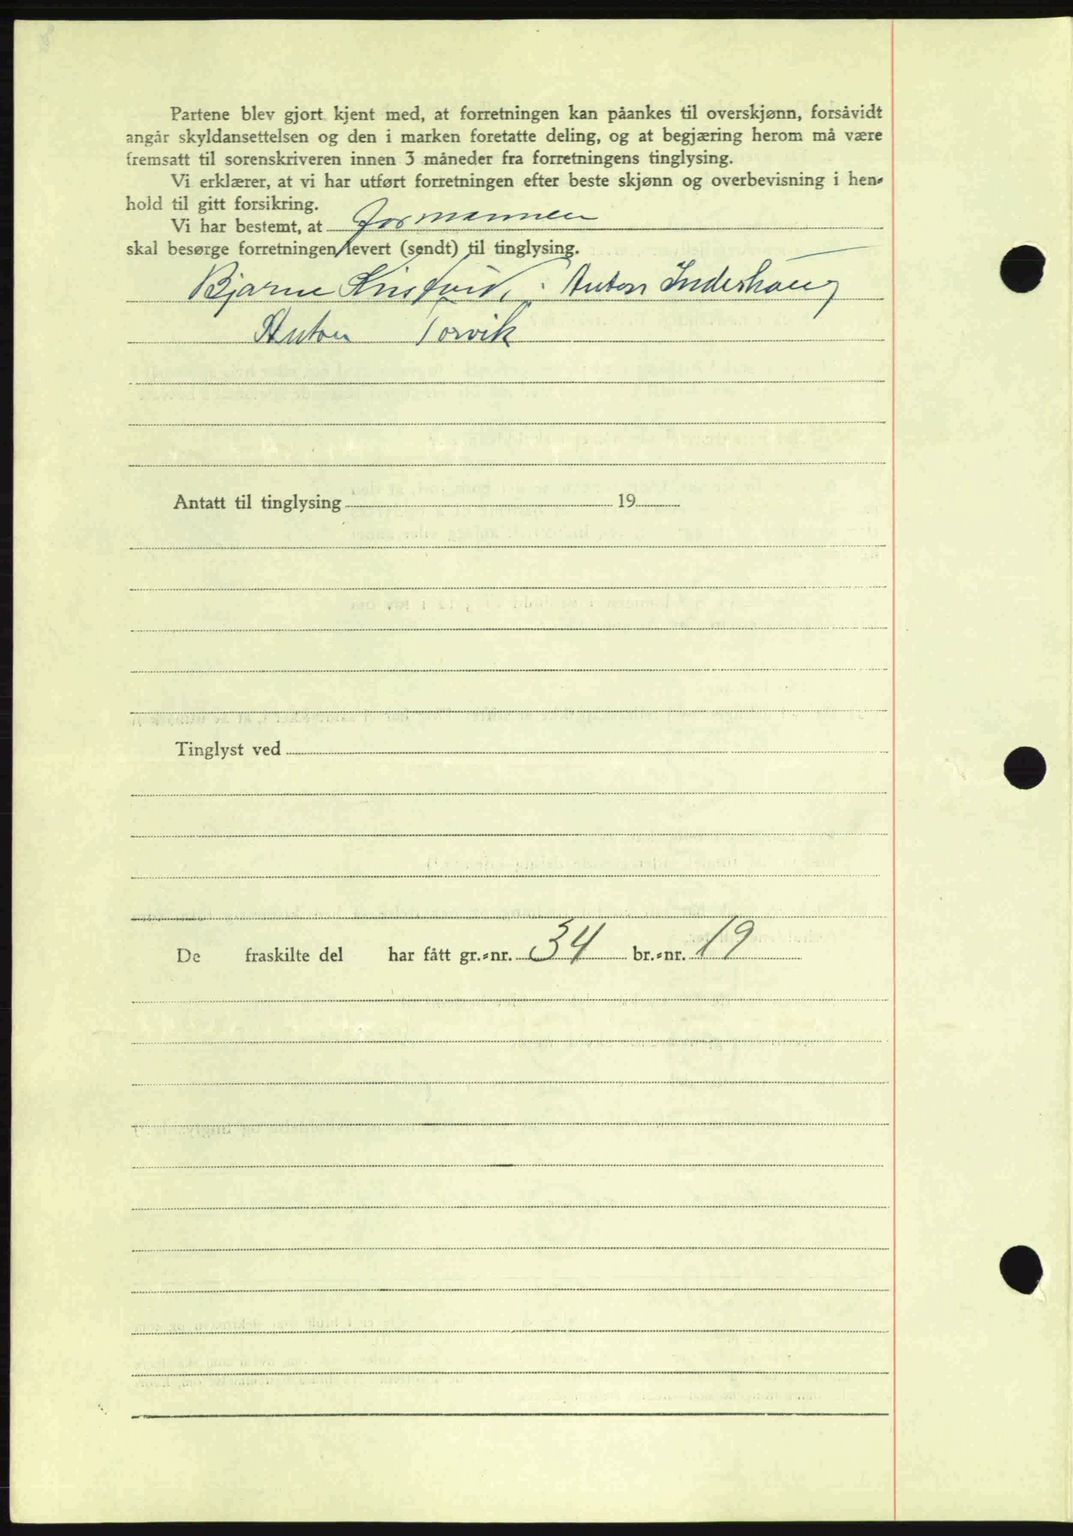 Partene blev gjort kjent med, at forretningen kan påankes til overskjønn, forsåvidt
angår skyldansettelsen og den i marken foretatte deling, og at begjæring herom må være
fremsatt til sorenskriveren innen 3 måneder fra forretningens tinglysing.
Vi erklærer, at vi har utført forretningen efter beste skjønn og overbevisning i hen-
hold til gitt forsikring.
Vi har bestemt, at formannen
skal besørge forretningen levert (sendt) til tinglysing.
Bjarne Anton Inderhaug
Anton Torvik
Antatt til tinglysing 19
Tinglyst ved
De fraskilte del har fått gr.-nr. 34 br.-nr. 19